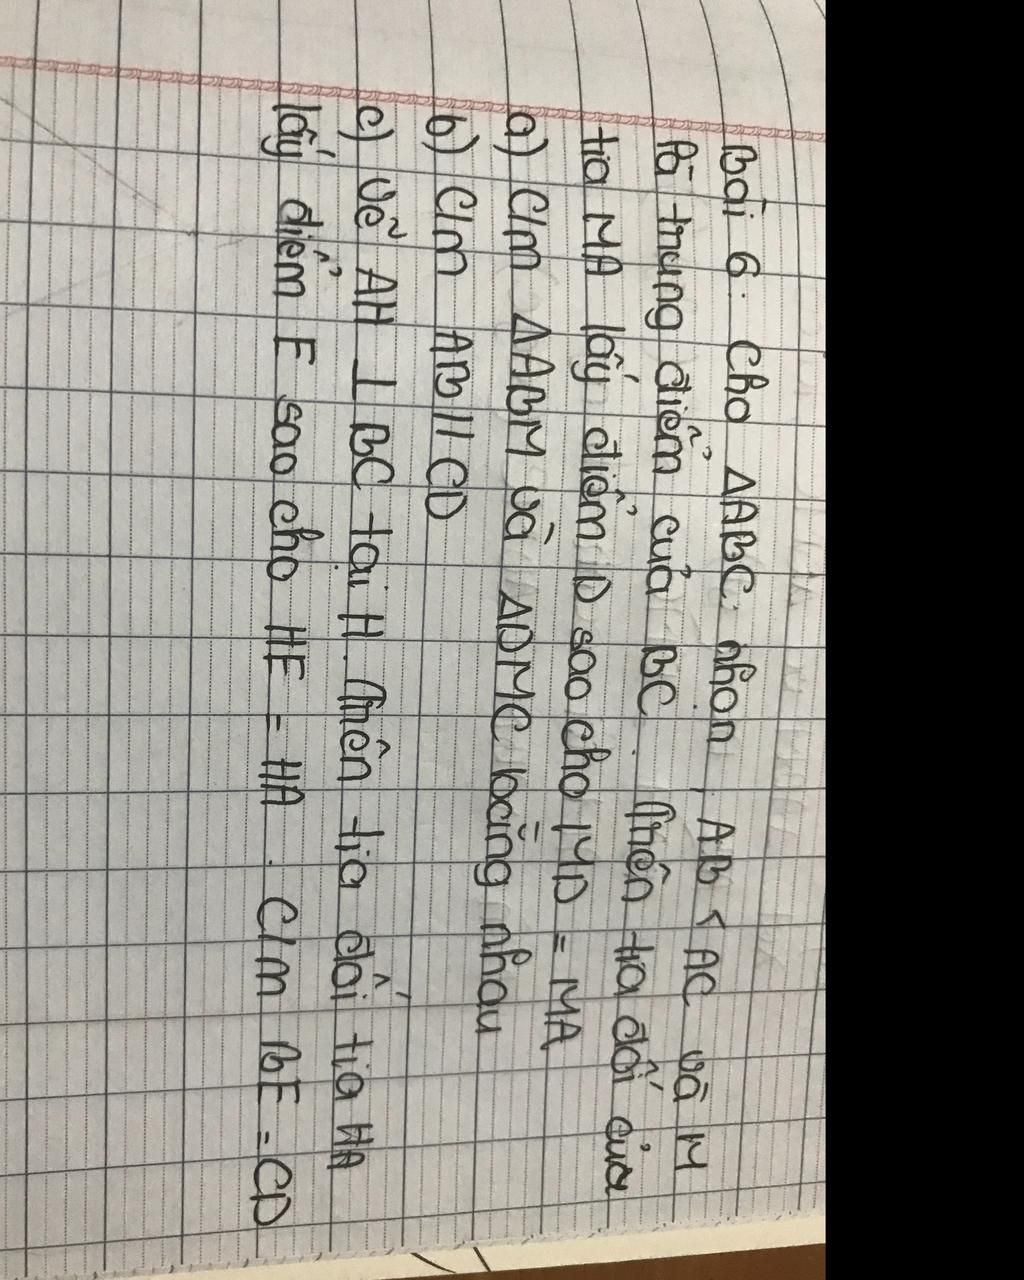 Bài 6: Cho ΔABC nhọn, AB < AC và M
là trung điểm của BC. Trên tia đối của
tia MA lấy điểm D sao cho MD = MA
a) C/m ΔABM và ΔDMC bằng nhau
b) C/m AB // CD
c) Vẽ AH ⊥ BC tại H. Trên tia đối tia HA
lấy điểm E sao cho HE = HA. C/m BE = CD